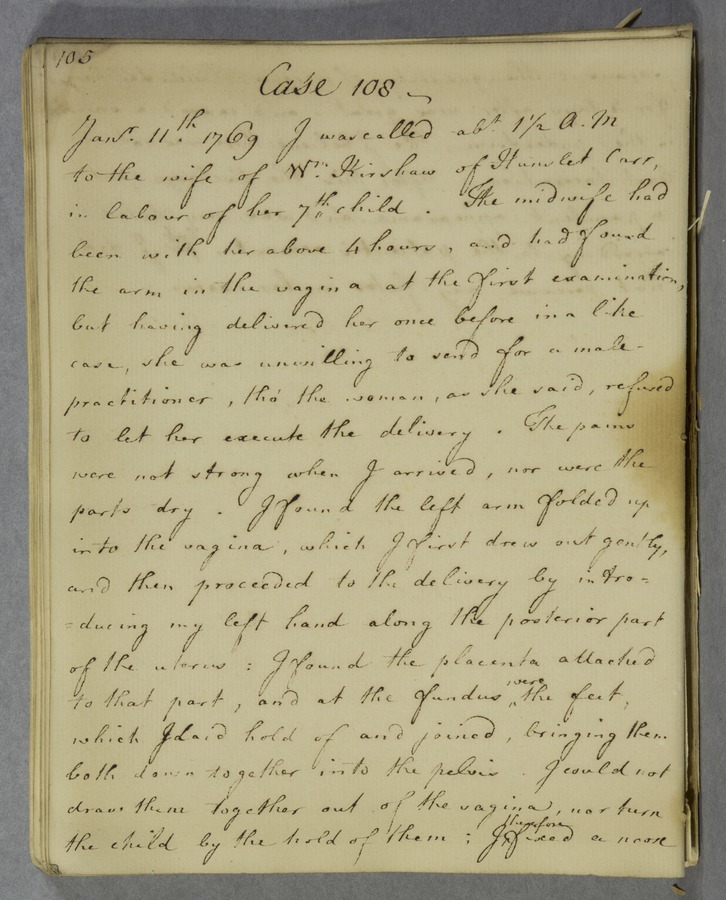 105
Case 108
Jany. 11.th 1769 I was called abt 1½ A.M
to the wife of Wm. Kirshaw of Hunslet Carr,
in labour of her 7th child. The midwife had
been with her above 4 hours, and had found
the arm in the vagina at the first examination,
but having delivered her once before in a like
case, she was unwilling to send for a male-
practitioner, tho' the woman, as she said, refused
to let her execute the delivery. The pains
were not strong when I arrived, nor were the
parts dry. I found the left arm folded up
into the vagina, which I first drew out gently,
and then proceeded to the delivery by intro=
=ducing my left hand along the posterior part
of the uterus: I found the placenta attached
to that part, and at the fundus were the feet,
which I laid hold of and joined, bringing them
both down together into the pelvis. I could not
draw them together out of the vagina, nor turn
the child by the hold of them; I therefore fixed a noose